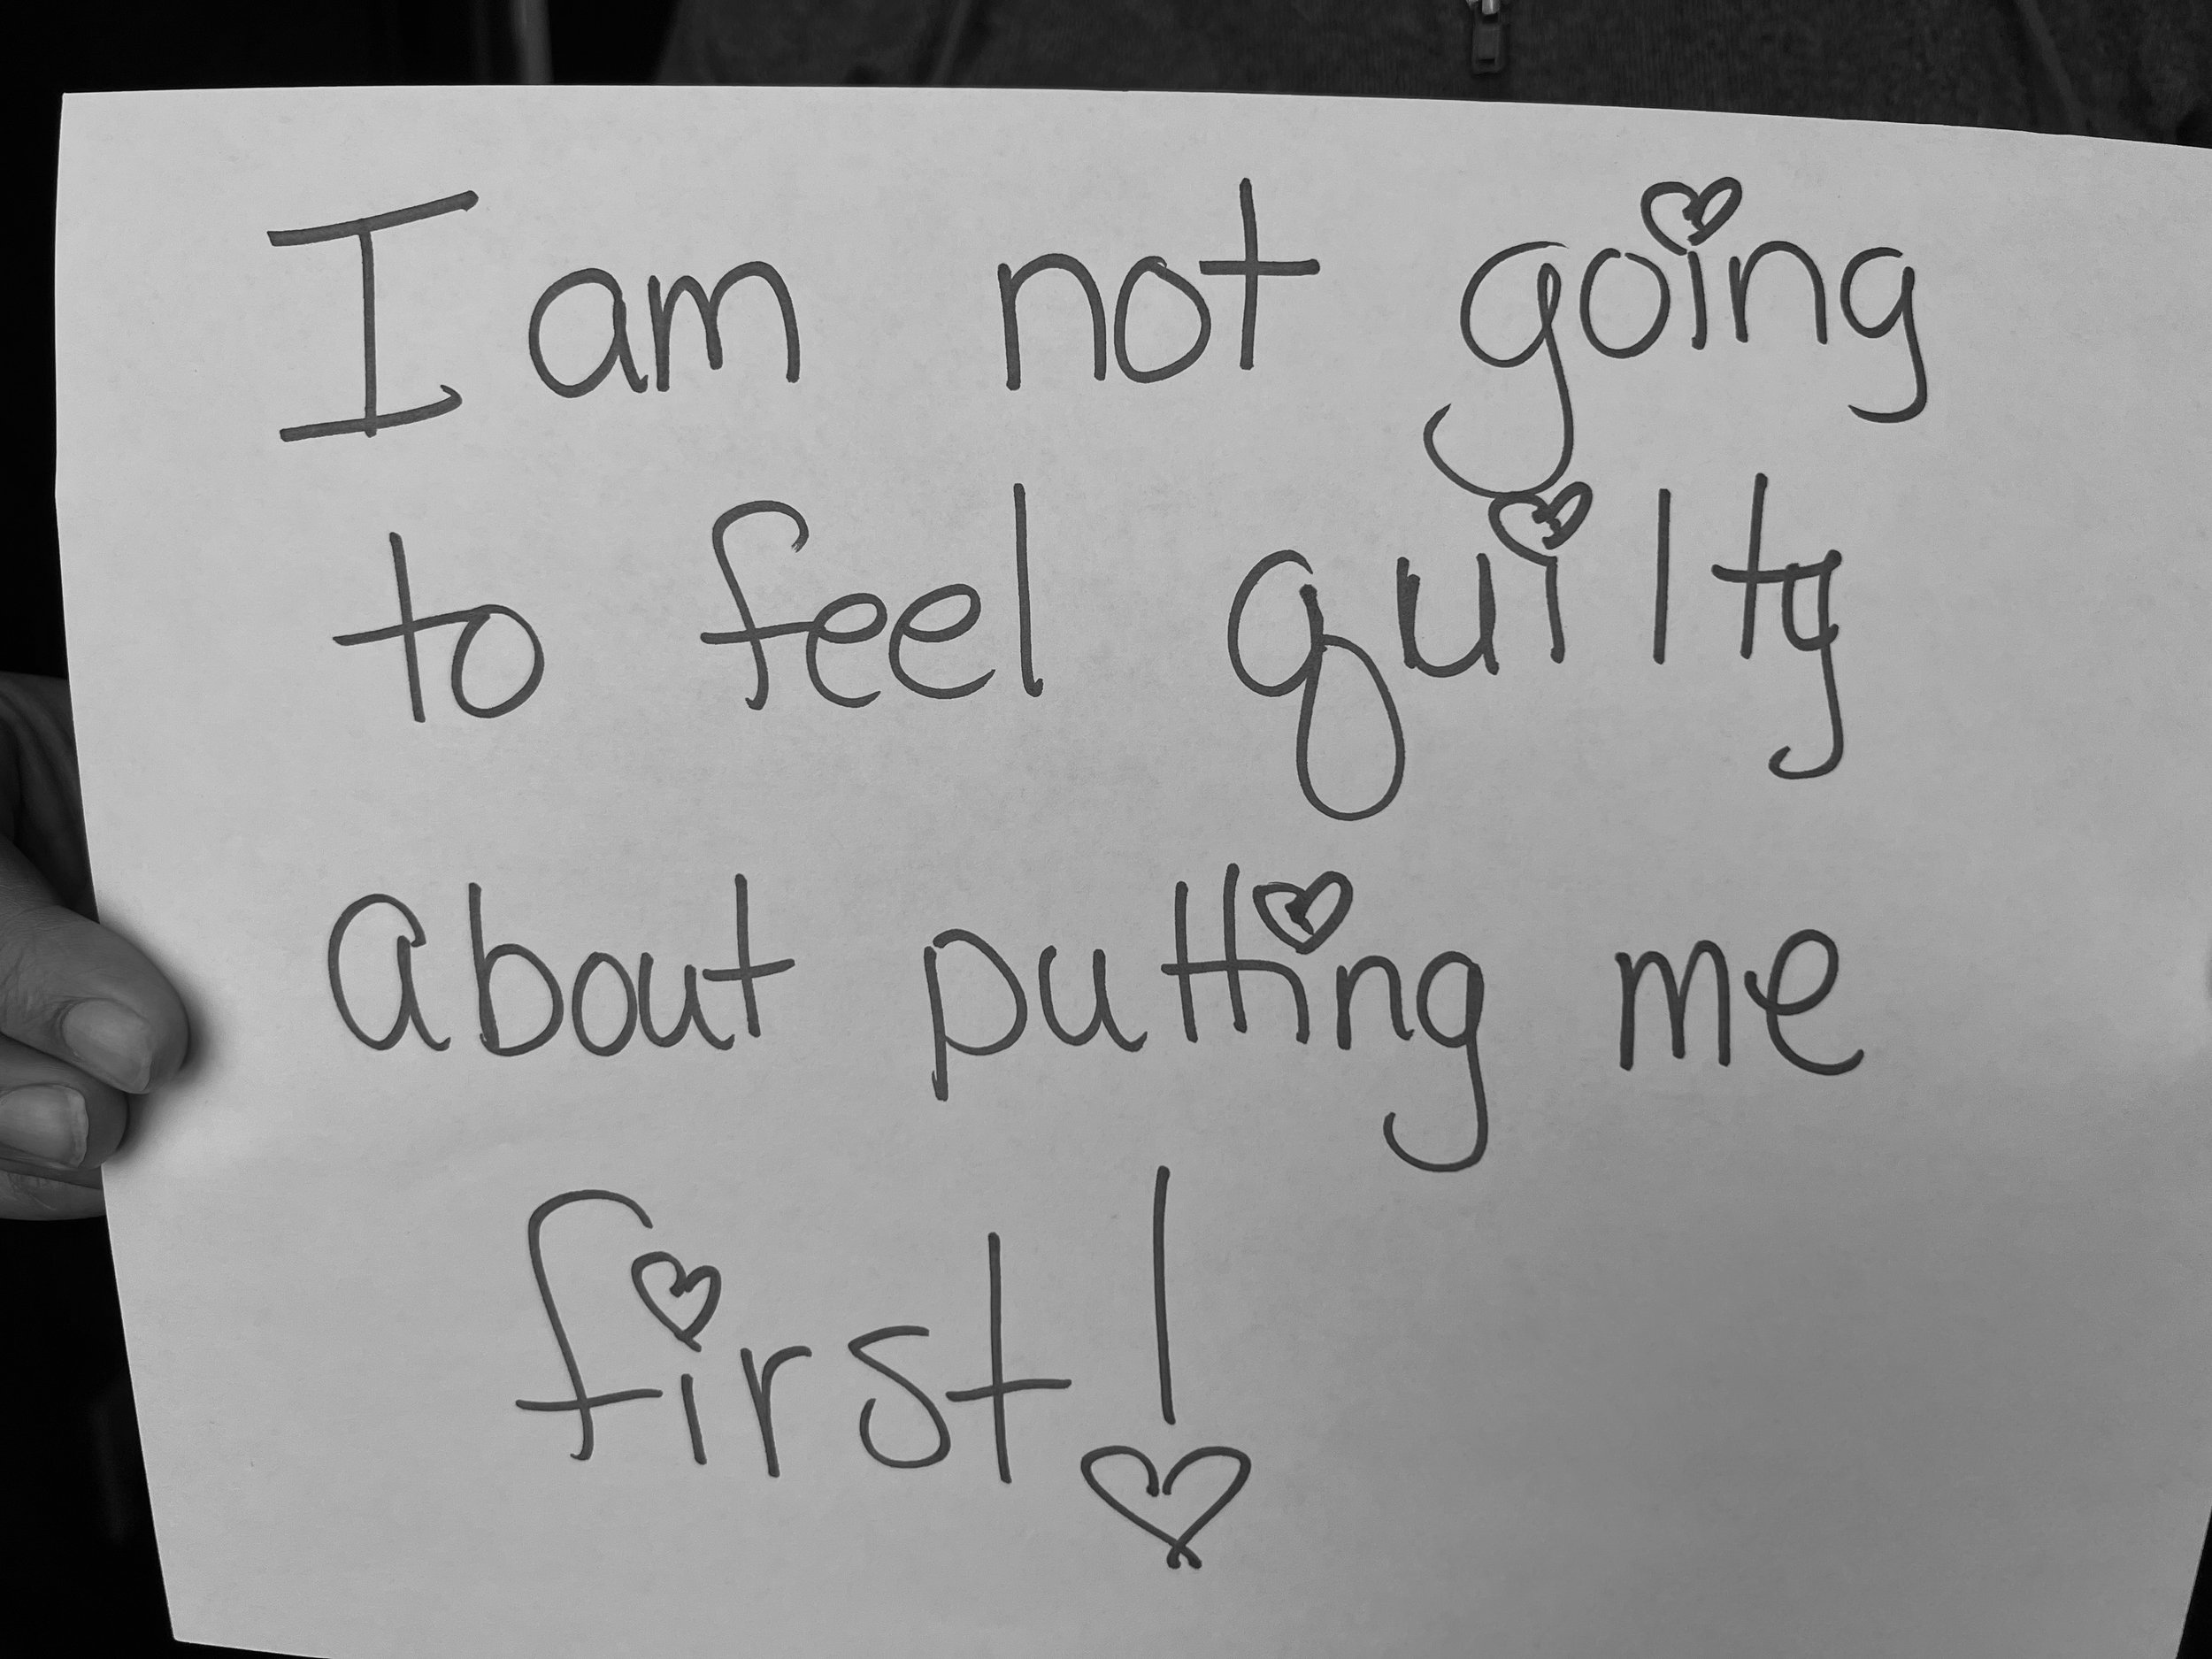 I am not going
to feel guilty
about putting me
first!